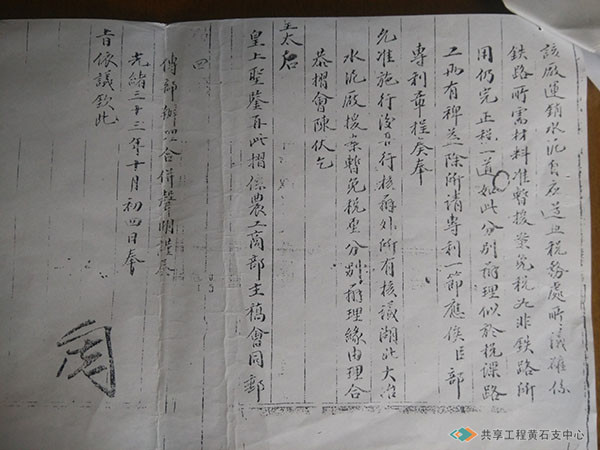 該廠運銷水泥自應遵照稅務處所議確係
鐵路所需材料准暫援案免稅如非鐵路所
用仍完正稅一道如此分別辦理似於稅課路
工兩有裨益除所請專利一節應俟臣部
專利章程奏奉
允准施行後再行核辦外所有核議湖北大冶
水泥廠援案暫免稅釐分別辦理緣由理合
恭摺會陳伏乞
皇太后
皇上聖鑒再此摺係農工商部主稿會同郵
傳部辦理合併聲明謹奏
光緒三十三年十月初四日奉
旨依議欽此
四
共享工程黄石支中心